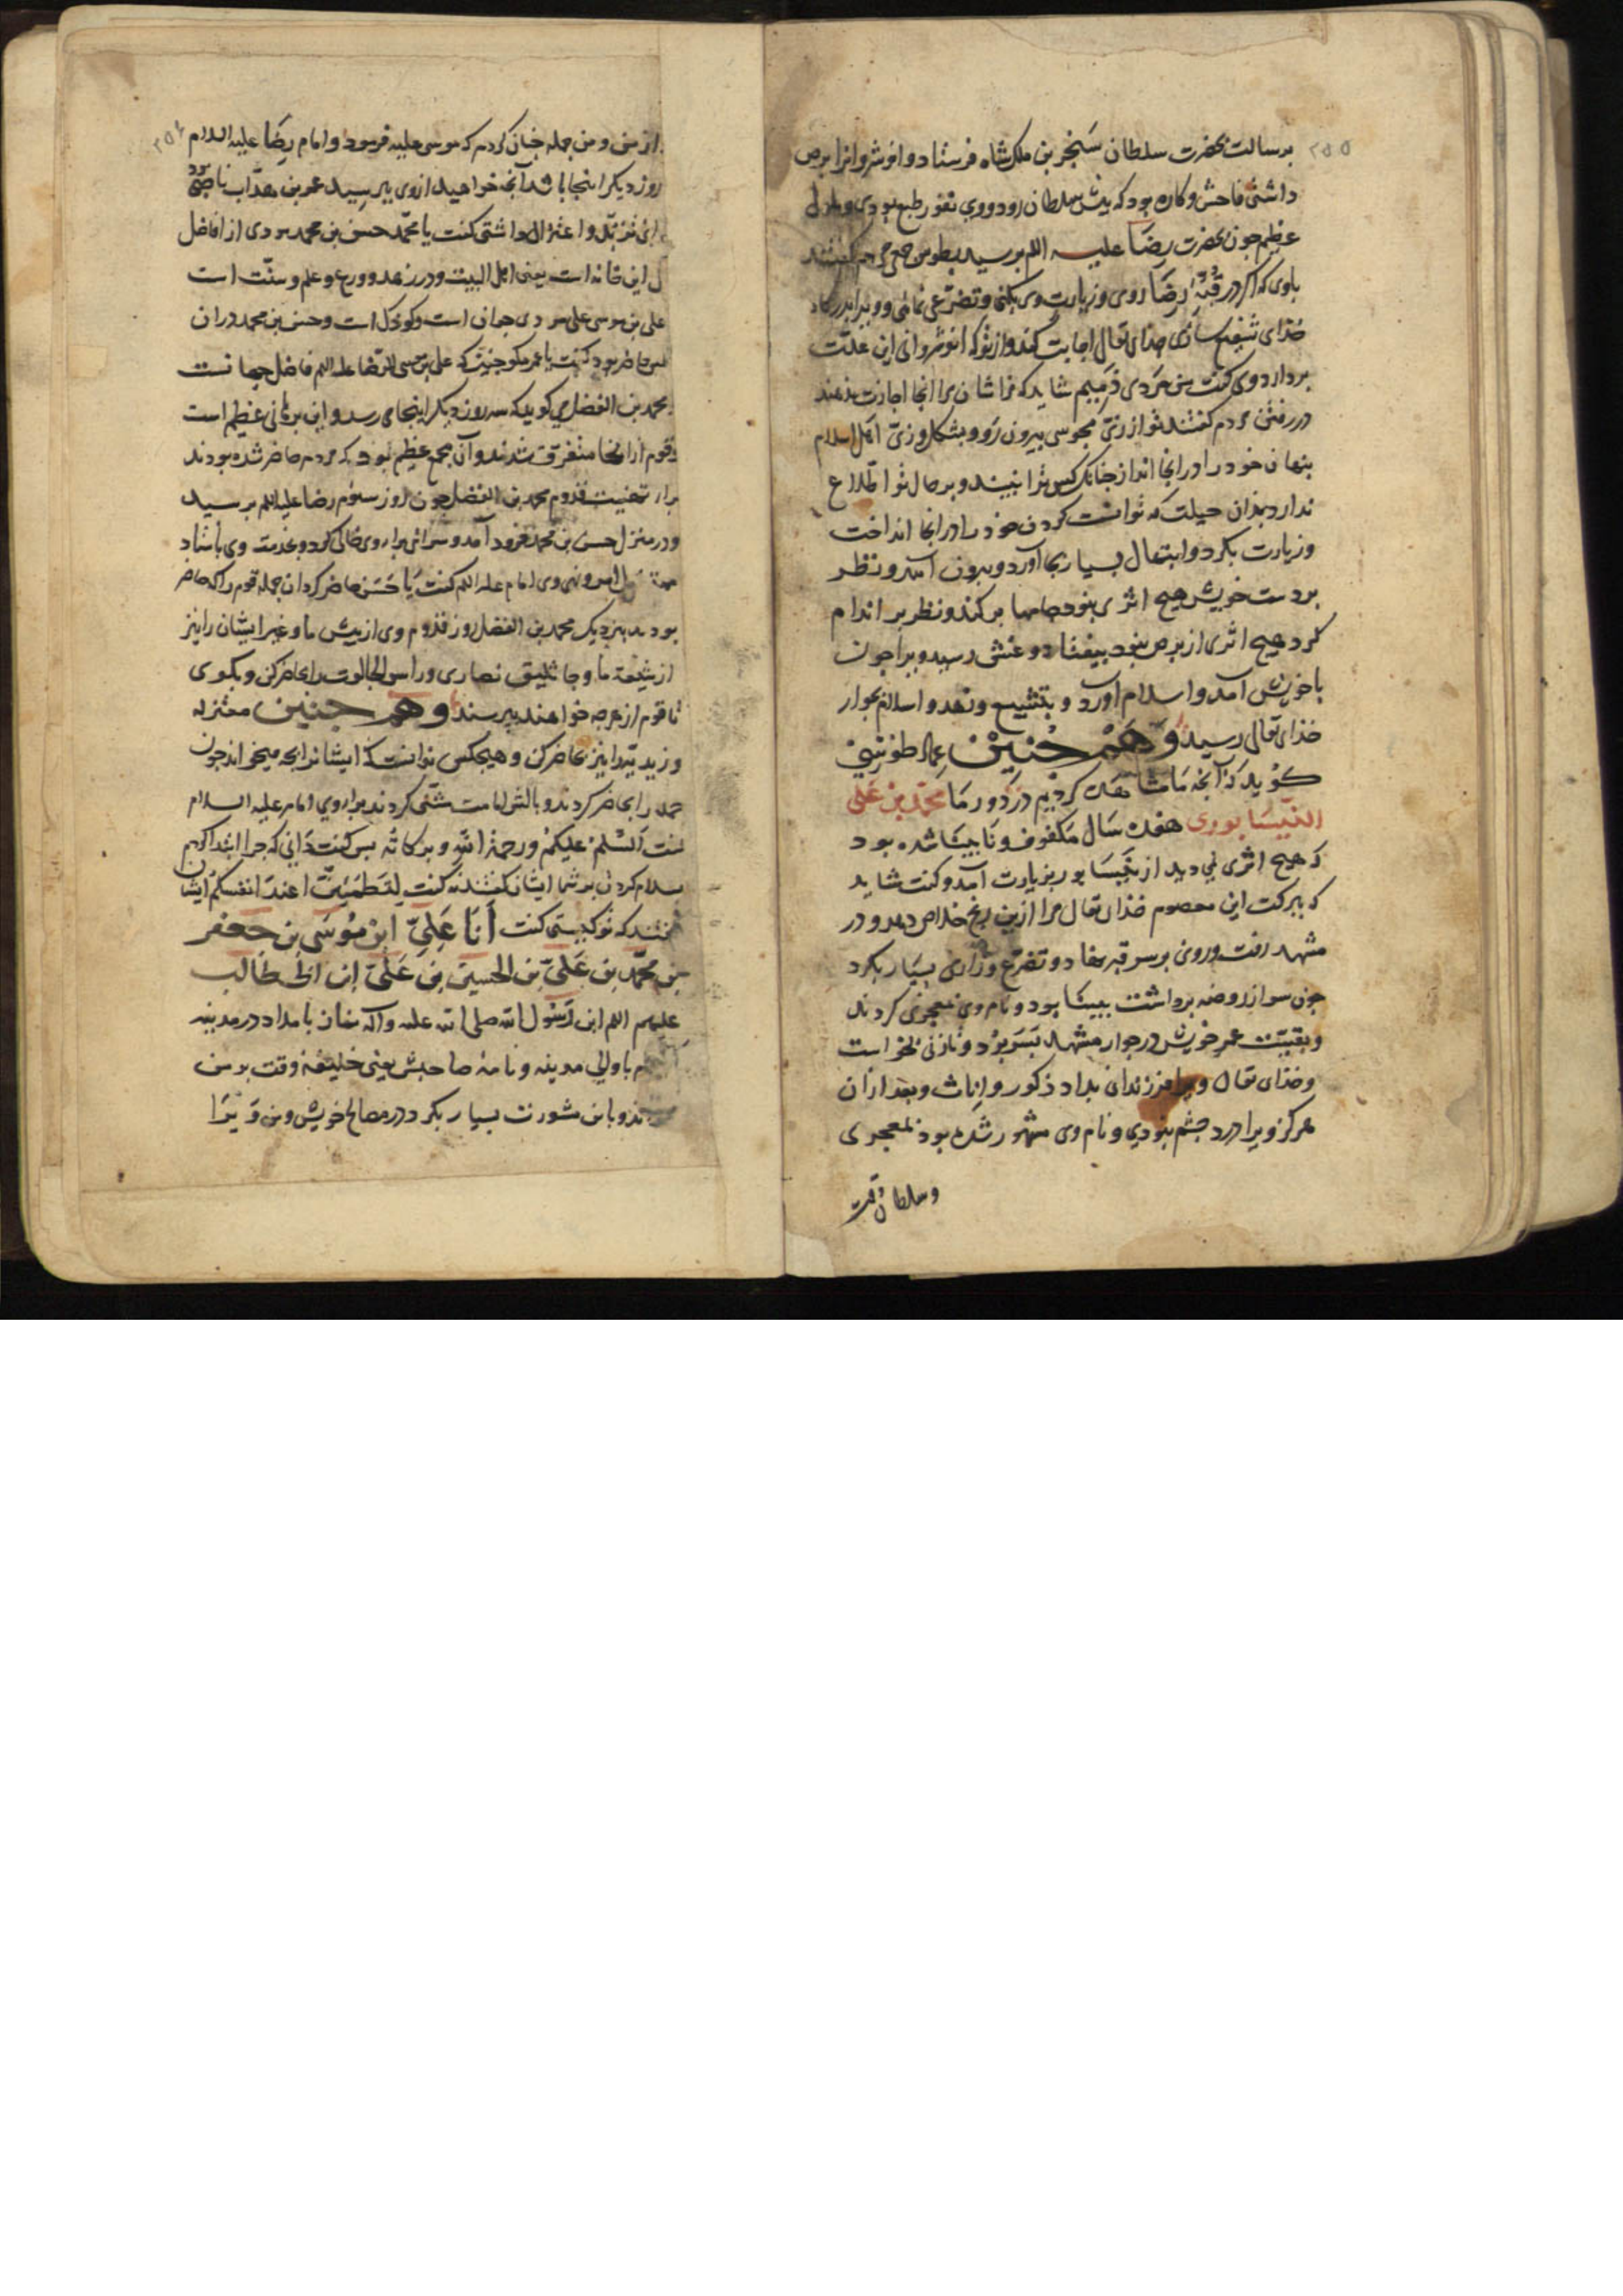 ۲۵۵
برسالت بحضرت سلطان سَنجر بن ملک شاه فرستاد و انوشروانرا برص
داشتی فاحش و کاره بود که پیش سلطان رود و وی نفور طبع بودی و
عظیم جون بحضرت رضا علیه اللم برسید بطوس جمعی مردم کفتند
باوی که اکر در قبّهٔ رضَا روی و زیارت وی بکنی و تضرّعی نمائی و ویرا بدرکاه
خذای شفیع سازی خدای تعالی اجابت کند و از تو که انوشروانی این علّت
بردارد وی کفت من مردی ذمّیم شاید که فراشان مرا انجا اجازت ندهند
در رفتن مردم کفتند تو از زیّ مجوسی بیرون رَو و بشکل و زیّ اهل اسلام
بنهان خود را در انجا انداز جنانک کس ترا نبیند و بر حال تو اطّلاع
ندارد بذان حیلت که توانست کردن خود را در انجا انداخت
و زیارت بکرد و ابتهال بسیار بجا آورد و بیرون آمد و نظر
بر دست خویش هیچ اثری نبود جامها برکند و نظر بر اندام
کرد هیچ اثری از برص نبود بیفتاد و غشی رسید ویرا جون
باخویش آمد و اسلام اورد و بتشیع و بعد و اسلام بجوار
خذای تعالی رسید و هَمْ جُنینْ عماد طوسی
کوید که آنجه مَا مشاهدت کردیم در دور مَا محمّد بن عَلی
النّیسَابوری هفده سَال مَکفوف و نَابینَا شده بود
که هیچ اثری نمی دید از نیسَابور بزیارت آمد و کفت شاید
که ببرکت این معصوم خذای تعالی مرا ازین رنج خلاص دهد و در
مشهد رفت و روی بر سر قبر نهاد و تضرّع و زاری بسیَار بکرد
جون سر از روضه برداشت بینَا بود و نام وی معجزی کردند
و بقیّت عمر خویش در جوار مشهد بسَر بُرد و نازنی بخواست
و خذای تعالی ویرا فرزندان بداد ذکور و اناث و بعد ازان
هرکز ویرا درد جشم نبودی و نام وی مشهور شده بود بمعجزی
وسلطان وقت
۲۵٤
از من و من جمله جنان کردم که موسی علیه فرمود و امام رضَا علیه السلام
روز دیکر اینجا باشد آنجه خواهید از وی ببرسید عمرو بن هدّاب ناصبی بود
و اعتزال داشتی کفت یا محمّد حسن بن محمد مردی از افاضل
این خانه است یعنی اهل البیت و در زهد و ورع و علم و سنّت است
علی بن موسی علیه مردی جوان است و کودک است و حسن بن محمد دران
حاضر بود کفت یا عمر مکو جنین که علی بن موسی الرّضا علیه اللم فاضل جهانست
محمد بن الفضل می کوید که سه روز دیکر اینجا می رسد و این برهانی عظیم است
و قوم از انجا متفرق شدند و آن مجمع عظیم بود که مردم حاضر شده بودند
برای تهنیت قدوم محمد بن الفضل جون روز سیوم رضا علیه اللم برسید
و در منزل حسن بن محمد فرود آمد و سرائی برای وی خالی کرد و بخدمت وی باستاد
امر و نهی وی امام علیه اللم کفت یَا حَسَن حاضر کردان جمله قوم را که حاضر
بودند بنزدیک محمد بن الفضل روز قدوم وی از بیش ما و غیر ایشان را نیز
از شیعهٔ ما و جاثلیق نصاری و راس الجالوت را حاضر کن و بکوی
تا قوم از هر جه خواهند ببرسند و هَم جنین معتزله
و زیدیّه را نیز حاضر کن و هیچکس ندانست که ایشانرا بجه میخواند جون
همه را حاضر کردند و بالش امامت مثنّی کردند برای وی امام علیه السلام
کفت اَلسّلمُ علیکمْ و رحمة الله و برکاتُه بس کفت دَانی که جرا ابتدا کردم
بسلام کردن بر شما ایشان کفتند نه کفت لِتَطمَئنّ اعندَ انفسکُم ایشان
کفتند که تو کیستی کفت اَنَا عَلیّ ابنُ مُوسَی بن جَعفر
بن محمّد بن عَلیّ بن الحسین بن عَلیّ ابن ابی طالب
علیهم اللم ابن رَسُول الله صلی الله علیه وآله نماز بامداد در مدینه
با والی مدینه و نامهٔ صاحبش یعنی خلیفهٔ وقت بر من
خواند و با من مشورت بسیار بکرد در مصالح خویش و من وَیرا